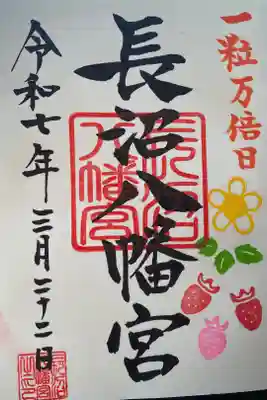 一粒万倍日
長沼八幡宮
長沼
八幡宮
令和七年三月二十二日